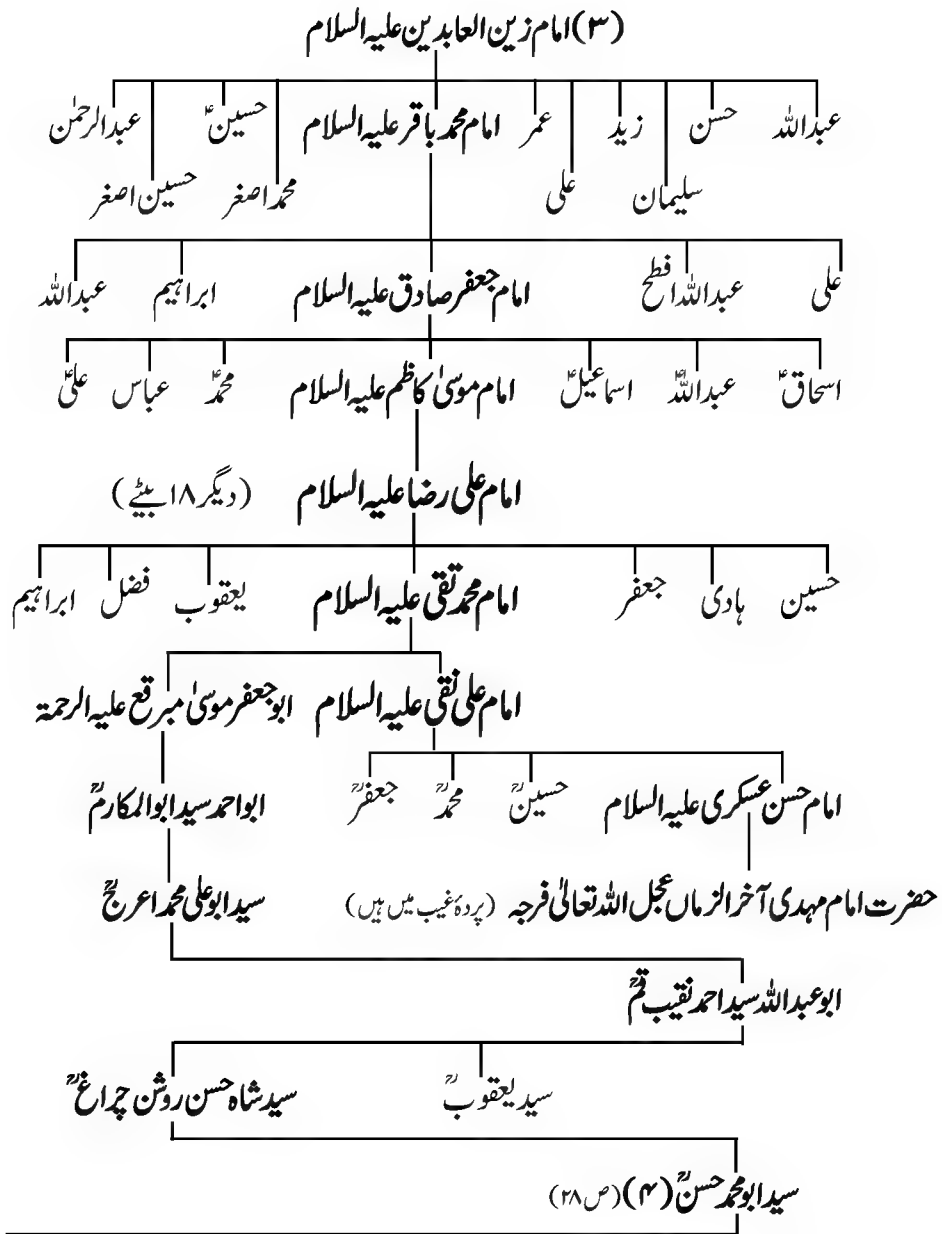 (۳) امام زین العابدین علیہ السلام
عبداللہ حسن زید عمر امام محمد باقر علیہ السلام حسینؑ عبدالرحمٰن
سلیمان علی محمد اصغر حسین اصغر
علی عبداللہ افطح امام جعفر صادق علیہ السلام ابراہیم عبداللہ
اسحاقؑ عبداللہؑ اسماعیلؑ امام موسیٰ کاظم علیہ السلام محمدؑ عباس علیؑ
امام علی رضا علیہ السلام (دیگر ۱۸ بیٹے)
حسین ہادی جعفر امام محمد تقی علیہ السلام یعقوب فضل ابراہیم
امام علی نقی علیہ السلام ابو جعفر موسیٰ مبرقع علیہ الرحمۃ
امام حسن عسکری علیہ السلام حسینؒ محمدؒ جعفرؒ ابو احمد سید ابوالمکارمؒ
حضرت امام مہدی آخر الزماں عجل اللہ تعالیٰ فرجہ (پردۂ غیب میں ہیں) سید ابو علی محمد اعرجؒ
ابو عبداللہ سید احمد نقیب قمؒ
سید یعقوبؒ سید شاہ حسن روشن چراغؒ
سید ابو محمد حسنؒ (۴) (ص ۲۸)